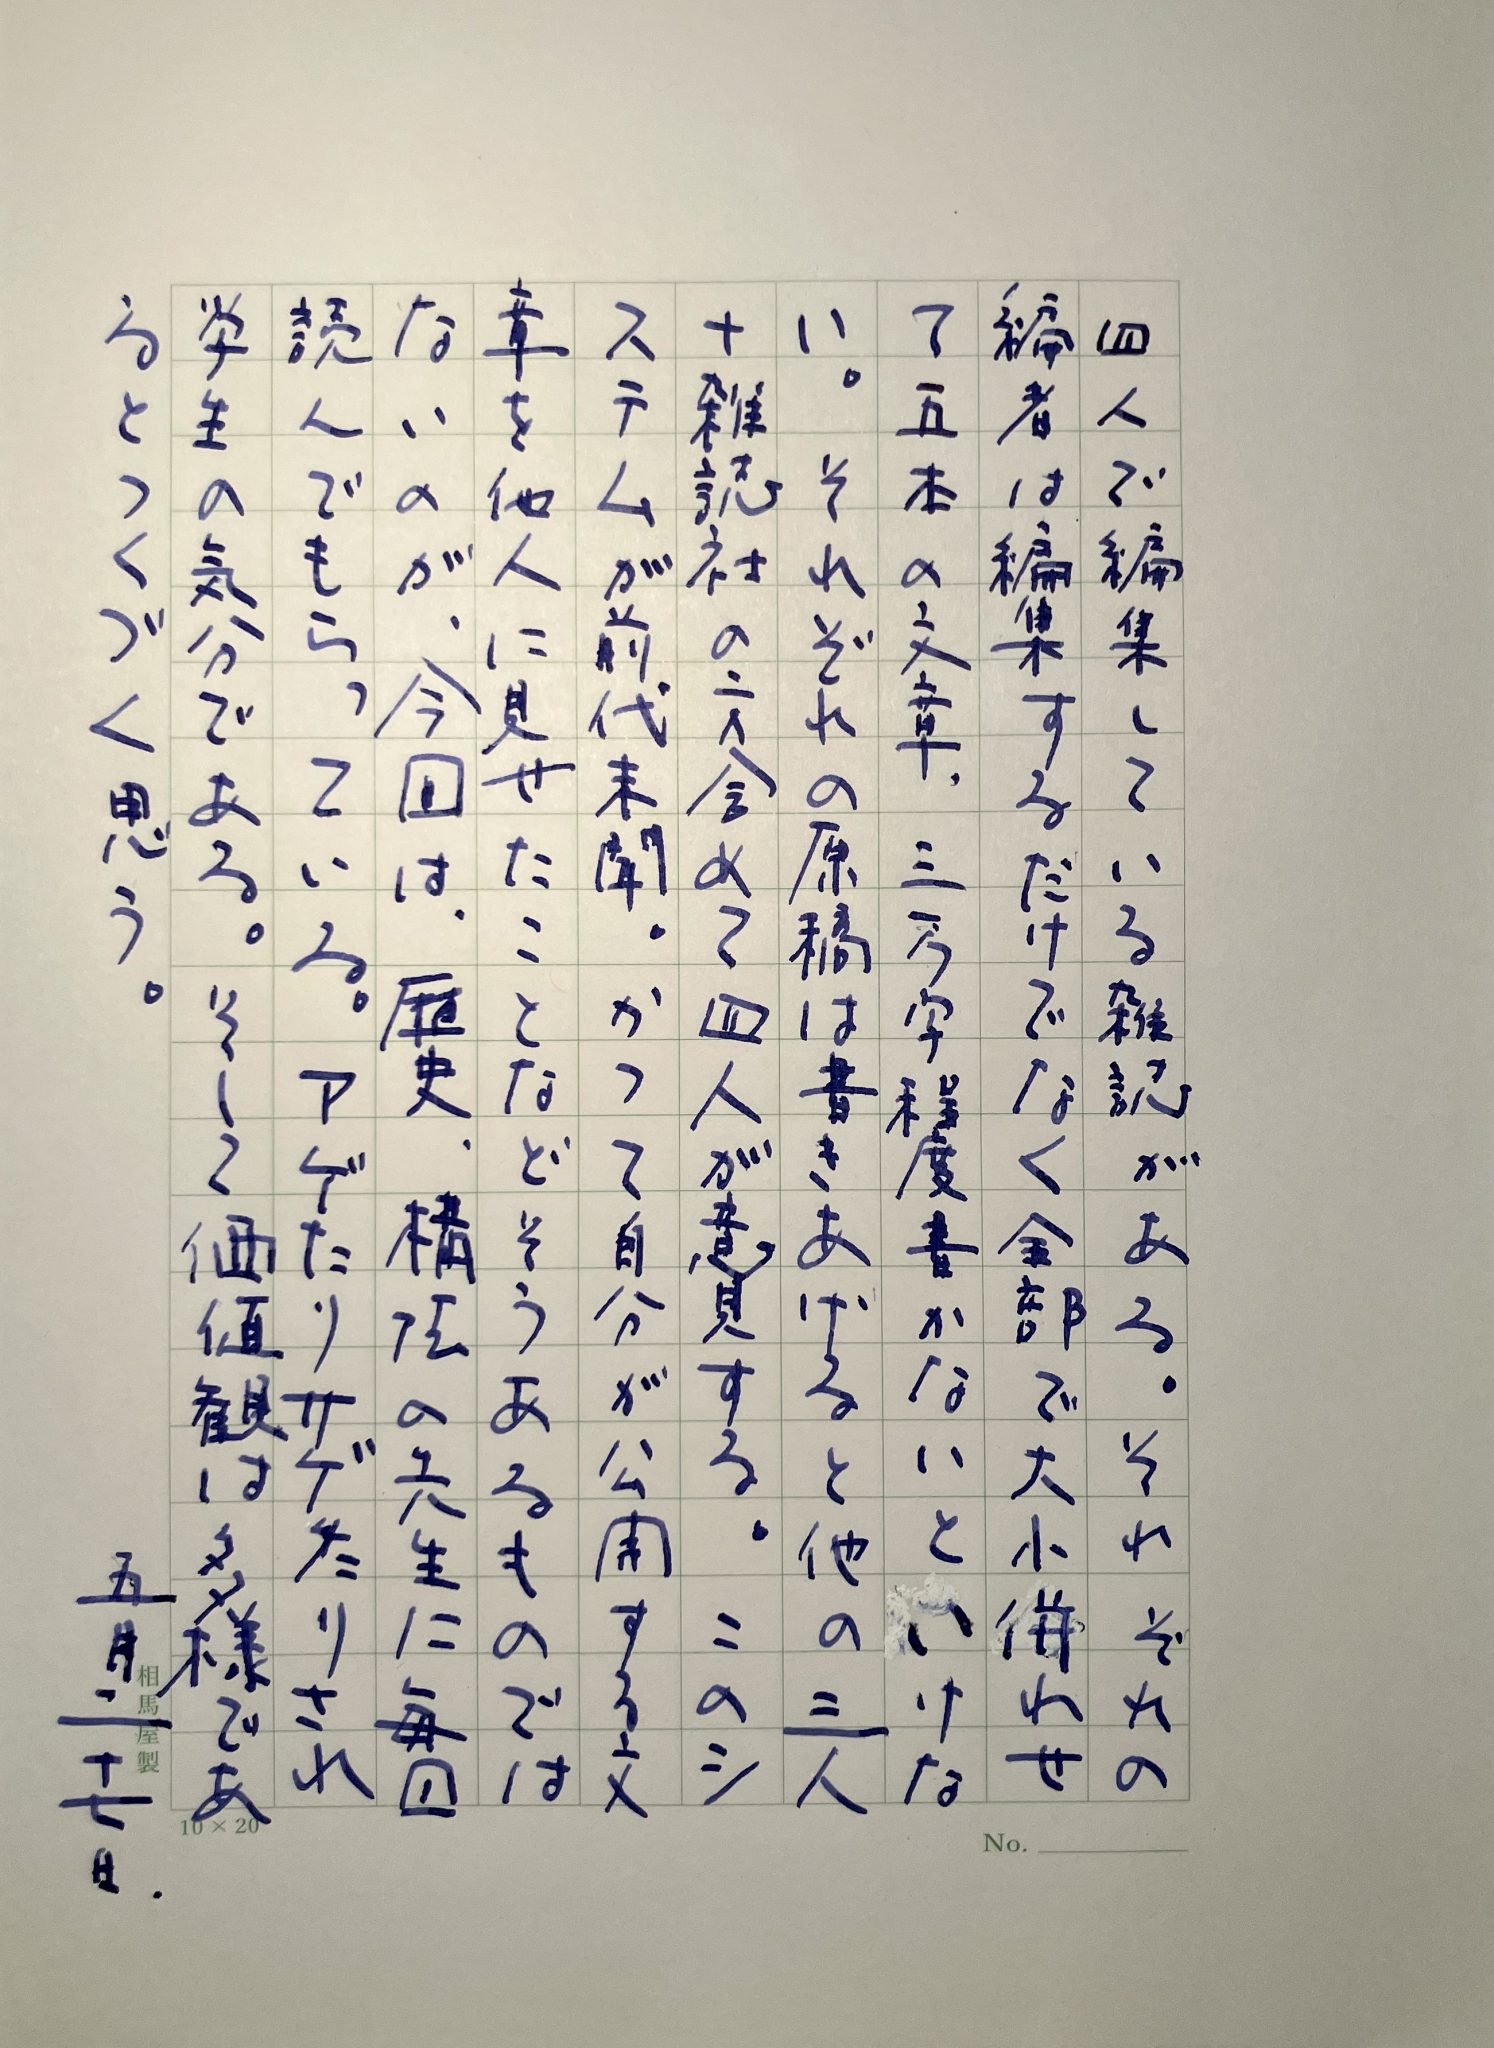 四人で編集している雑誌がある。それぞれの
編者は編集するだけでなく全部で大小併わせ
て五本の文章、三万字程度書かないといけな
い。それぞれの原稿は書きあげると他の三人
+雑誌社の方含めて四人が意見する。このシ
ステムが前代未聞。かつて自分が公開する文
章を他人に見せたことなどそうあるものでは
ないのが、今回は、歴史、構法の先生に毎回
読んでもらっている。アゲたりサゲたりされ
学生の気分である。そして価値観は多様であ
るとつくづく思う。
五月二十七日.
相馬屋製
10×20
No.